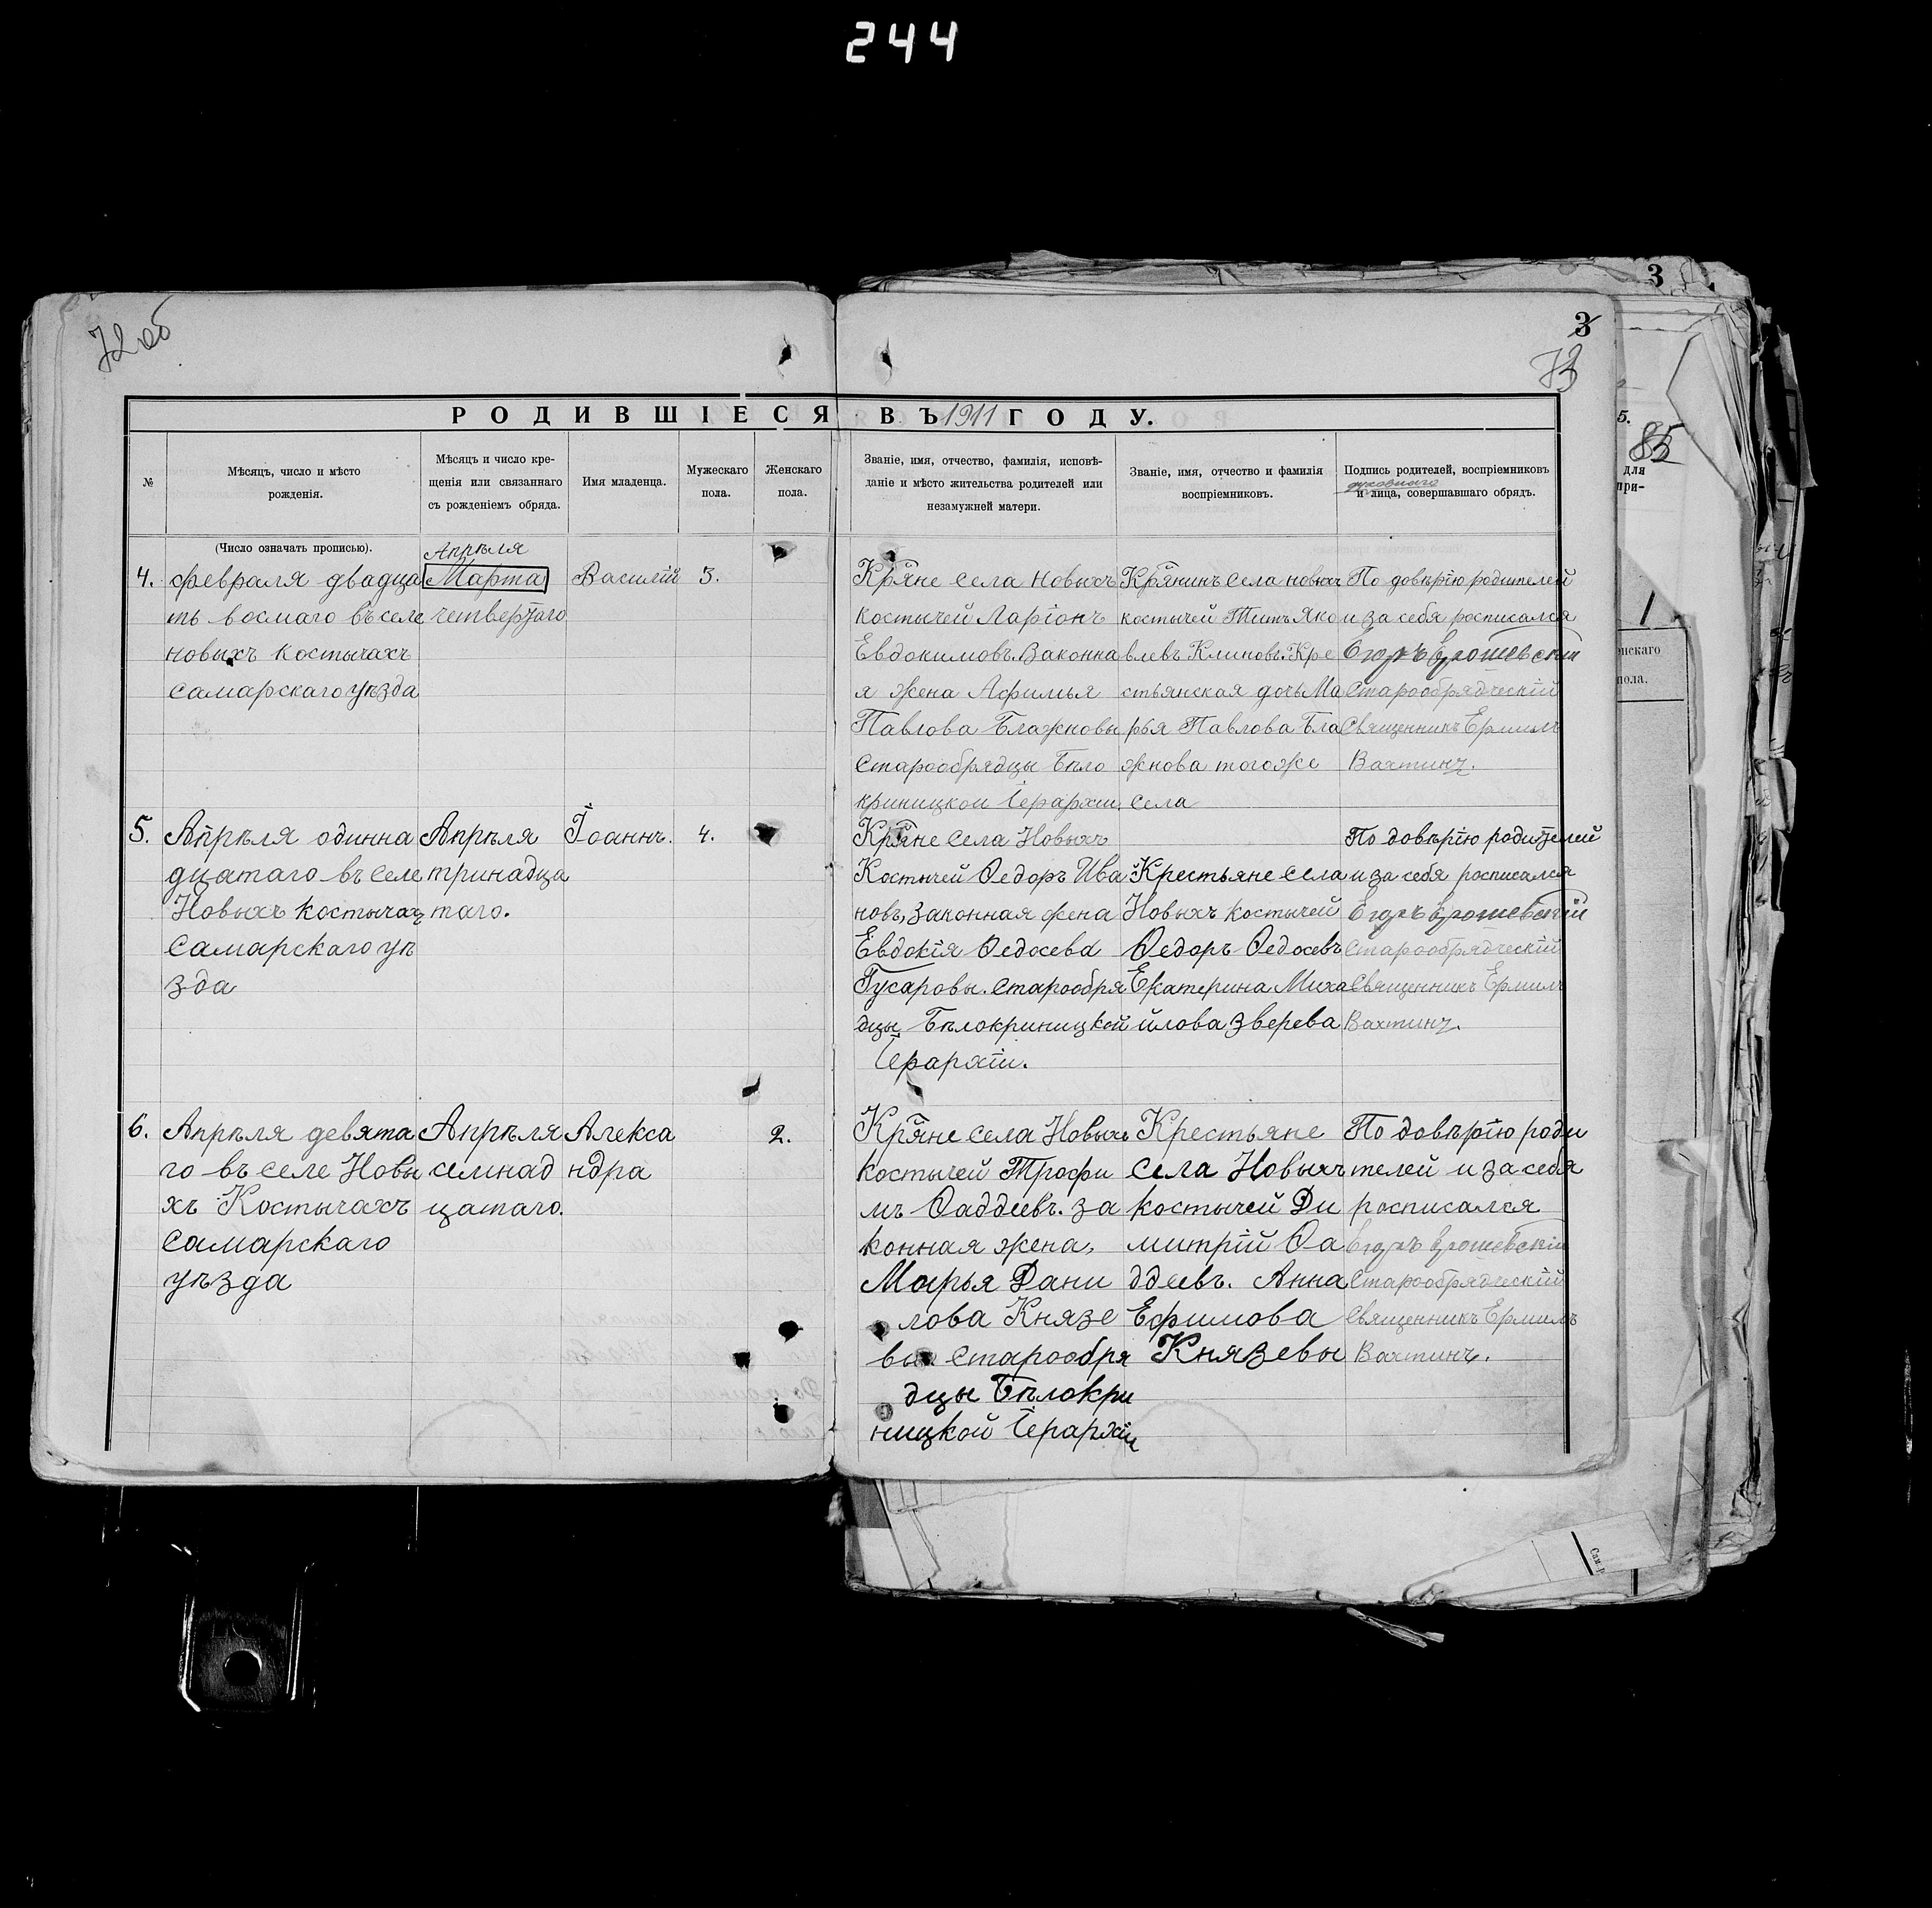 244
72 об
3
3
73
РОДИВШІЕСЯ ВЪ 1911 ГОДУ.
№
Мѣсяцъ, число и мѣсто
рожденія.
(Число означать прописью).
Мѣсяцъ и число кре-
щенія или связаннаго
съ рожденіемъ обряда.
Имя младенца.
Мужескаго
пола.
Женскаго
пола.
Званіе, имя, отчество, фамилія, исповѣ-
даніе и мѣсто жительства родителей или
незамужней матери.
Званіе, имя, отчество и фамилія
воспріемниковъ.
Подпись родителей, воспріемниковъ
духовнаго
и лица, совершавшаго обрядъ.
4.
февраля двадца
ть восмаго въ селе
новыхъ костычахъ
самарскаго уѣзда
Апрѣля
Марта
четвертаго
Василій
3.
Кр̃яне села Новыхъ
костычей Ларіонъ
Евдокимовъ. Законна
я жена Афимья
Павлова Блажновы
старообрядцы Бѣло
криницкои Іерархіи.
Кр̃янинъ села новыхъ
костычей Титъ Яко
влевъ Климовъ. Кре
стьянская дочь Ма
рья Павлова Бла
жнова тогоже
села
По довѣрію родителей
и за себя росписался
Егоръ
Старообрядческій
Священникъ Ермилъ
Вахтинъ.
5.
Апрѣля одинна
дцатаго въ селе
Новыхъ костычахъ
самарскаго уѣ
зда
Апрѣля
тринадца
таго.
Іоаннъ.
4.
Кр̃яне села Новыхъ
Костычей Ѳедоръ Ива
новъ, законная жена
Евдокія Ѳедосева
Гусаровы. старообря
дцы Бѣлокриницкой
Іерархіи.
Крестьяне села
Новыхъ костычей
Ѳедоръ Ѳедосевъ
Екатерина Миха
йлова Зверева
По довѣрію родителей
и за себя росписался
Егоръ
Старообрядческій
Священникъ Ермилъ
Вахтинъ.
6.
Апрѣля девята
го въ селе Новы
хъ Костычахъ
самарскаго
уѣзда
Апрѣля
семнад
цатаго.
Алекса
ндра
2.
Кр̃яне села Новыхъ
костычей Трофи
мъ Ѳаддеевъ. за
конная жена,
Марья Дани
лова Князе
вы старообря
дцы Бѣлокри
ницкой Іерархіи
Крестьяне
села Новыхъ
костычей Ди
митрій Ѳа
ддеевъ. Анна
Ефимова
Князевы
По довѣрію роди
телей и за себя
росписался
Егоръ
Старообрядческій
священникъ Ермилъ
Вахтинъ.
5.
85
для
при-
1
енскаго
пола.